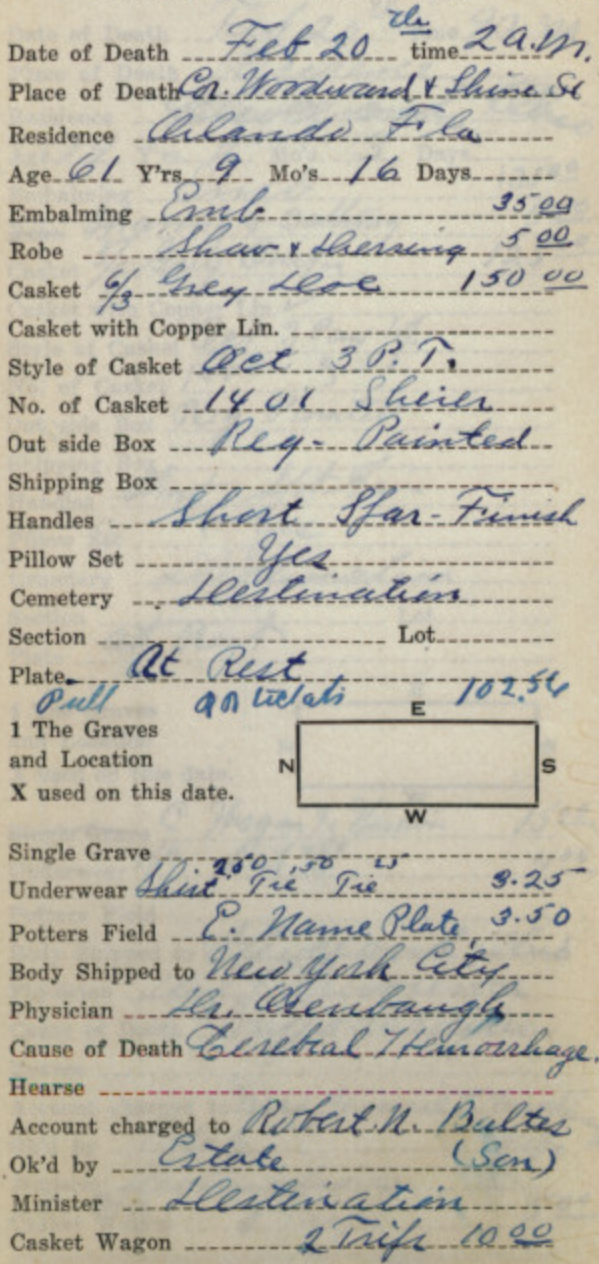 Date of Death Feb 20 th time 2 a.m.
Place of Death Cor. Woodward & Shine St
Residence Orlando Fla
Age 61 Y'rs 9 Mo's 16 Days
Embalming Emb 35 00
Robe Shav & Dressing 5 00
Casket 6/3 Grey Doe 150 00
Casket with Copper Lin.
Style of Casket Oct 3 P.T.
No. of Casket 1401
Out side Box Reg- Painted
Shipping Box
Handles Short Finish
Pillow Set Yes
Cemetery Destination
Section Lot
Plate At Rest
102.56
E
1 The Graves
and Location
X used on this date.
N S
W
Single Grave
2.50 .50 25
Underwear Shirt Tie Tie 3.25
Potters Field E. Name Plate 3.50
Body Shipped to New York City
Physician Dr.
Cause of Death Cerebral Hemorrhage.
Hearse
Account charged to Robert N.
Ok'd by Estate (Son)
Minister Destination
Casket Wagon 2 Trips 10 00